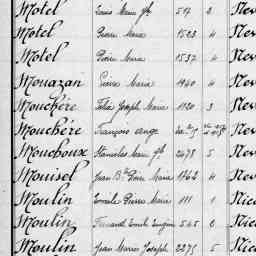 Motel Louis Marie Jh 517 2 Nev
Motel Pierre Marie 1523 4 Nev
Motel Pierre Marie 1537 4 Nev
Mouazan Pierre Marie 1940 4 Nev
Mouchère Félix Joseph Marie 1920 3 Nev
Mouchère François ange Nev
Mouchoux Stanislas Marie Jh 2478 5 Nev
Mouisel Jean Bte Pierre Marie 1962 4 Nev
Moulin Pierre Marie 111 1 Nic
Moulin Fernand Emile Eugène 545 2 Nic
Moulin Jean Marie Joseph 2275 5 Nic